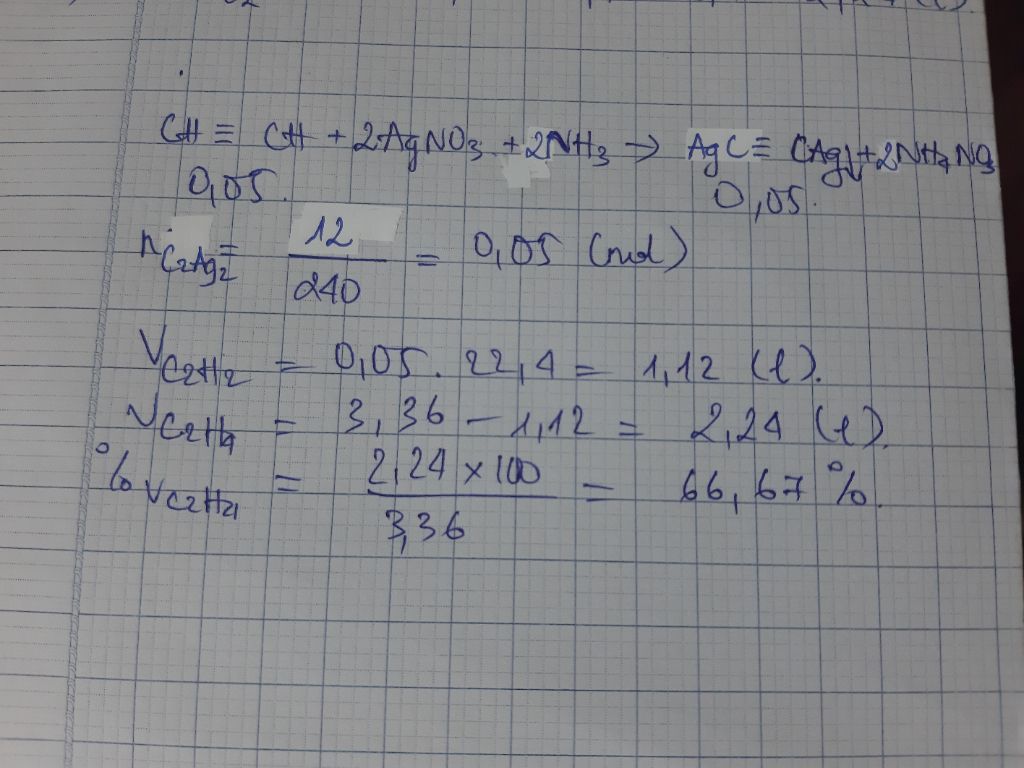 CH ≡ CH + 2AgNO3 + 2NH3 → AgC ≡ CAg↓ + 2NH4NO3
0,05. 0,05.
nC2Ag2 = 12/240 = 0,05 (mol)
VC2H2 = 0,05 . 22,4 = 1,12 (l).
VC2H4 = 3,36 - 1,12 = 2,24 (l).
%VC2H4 = 2,24 x 100/3,36 = 66,67%.